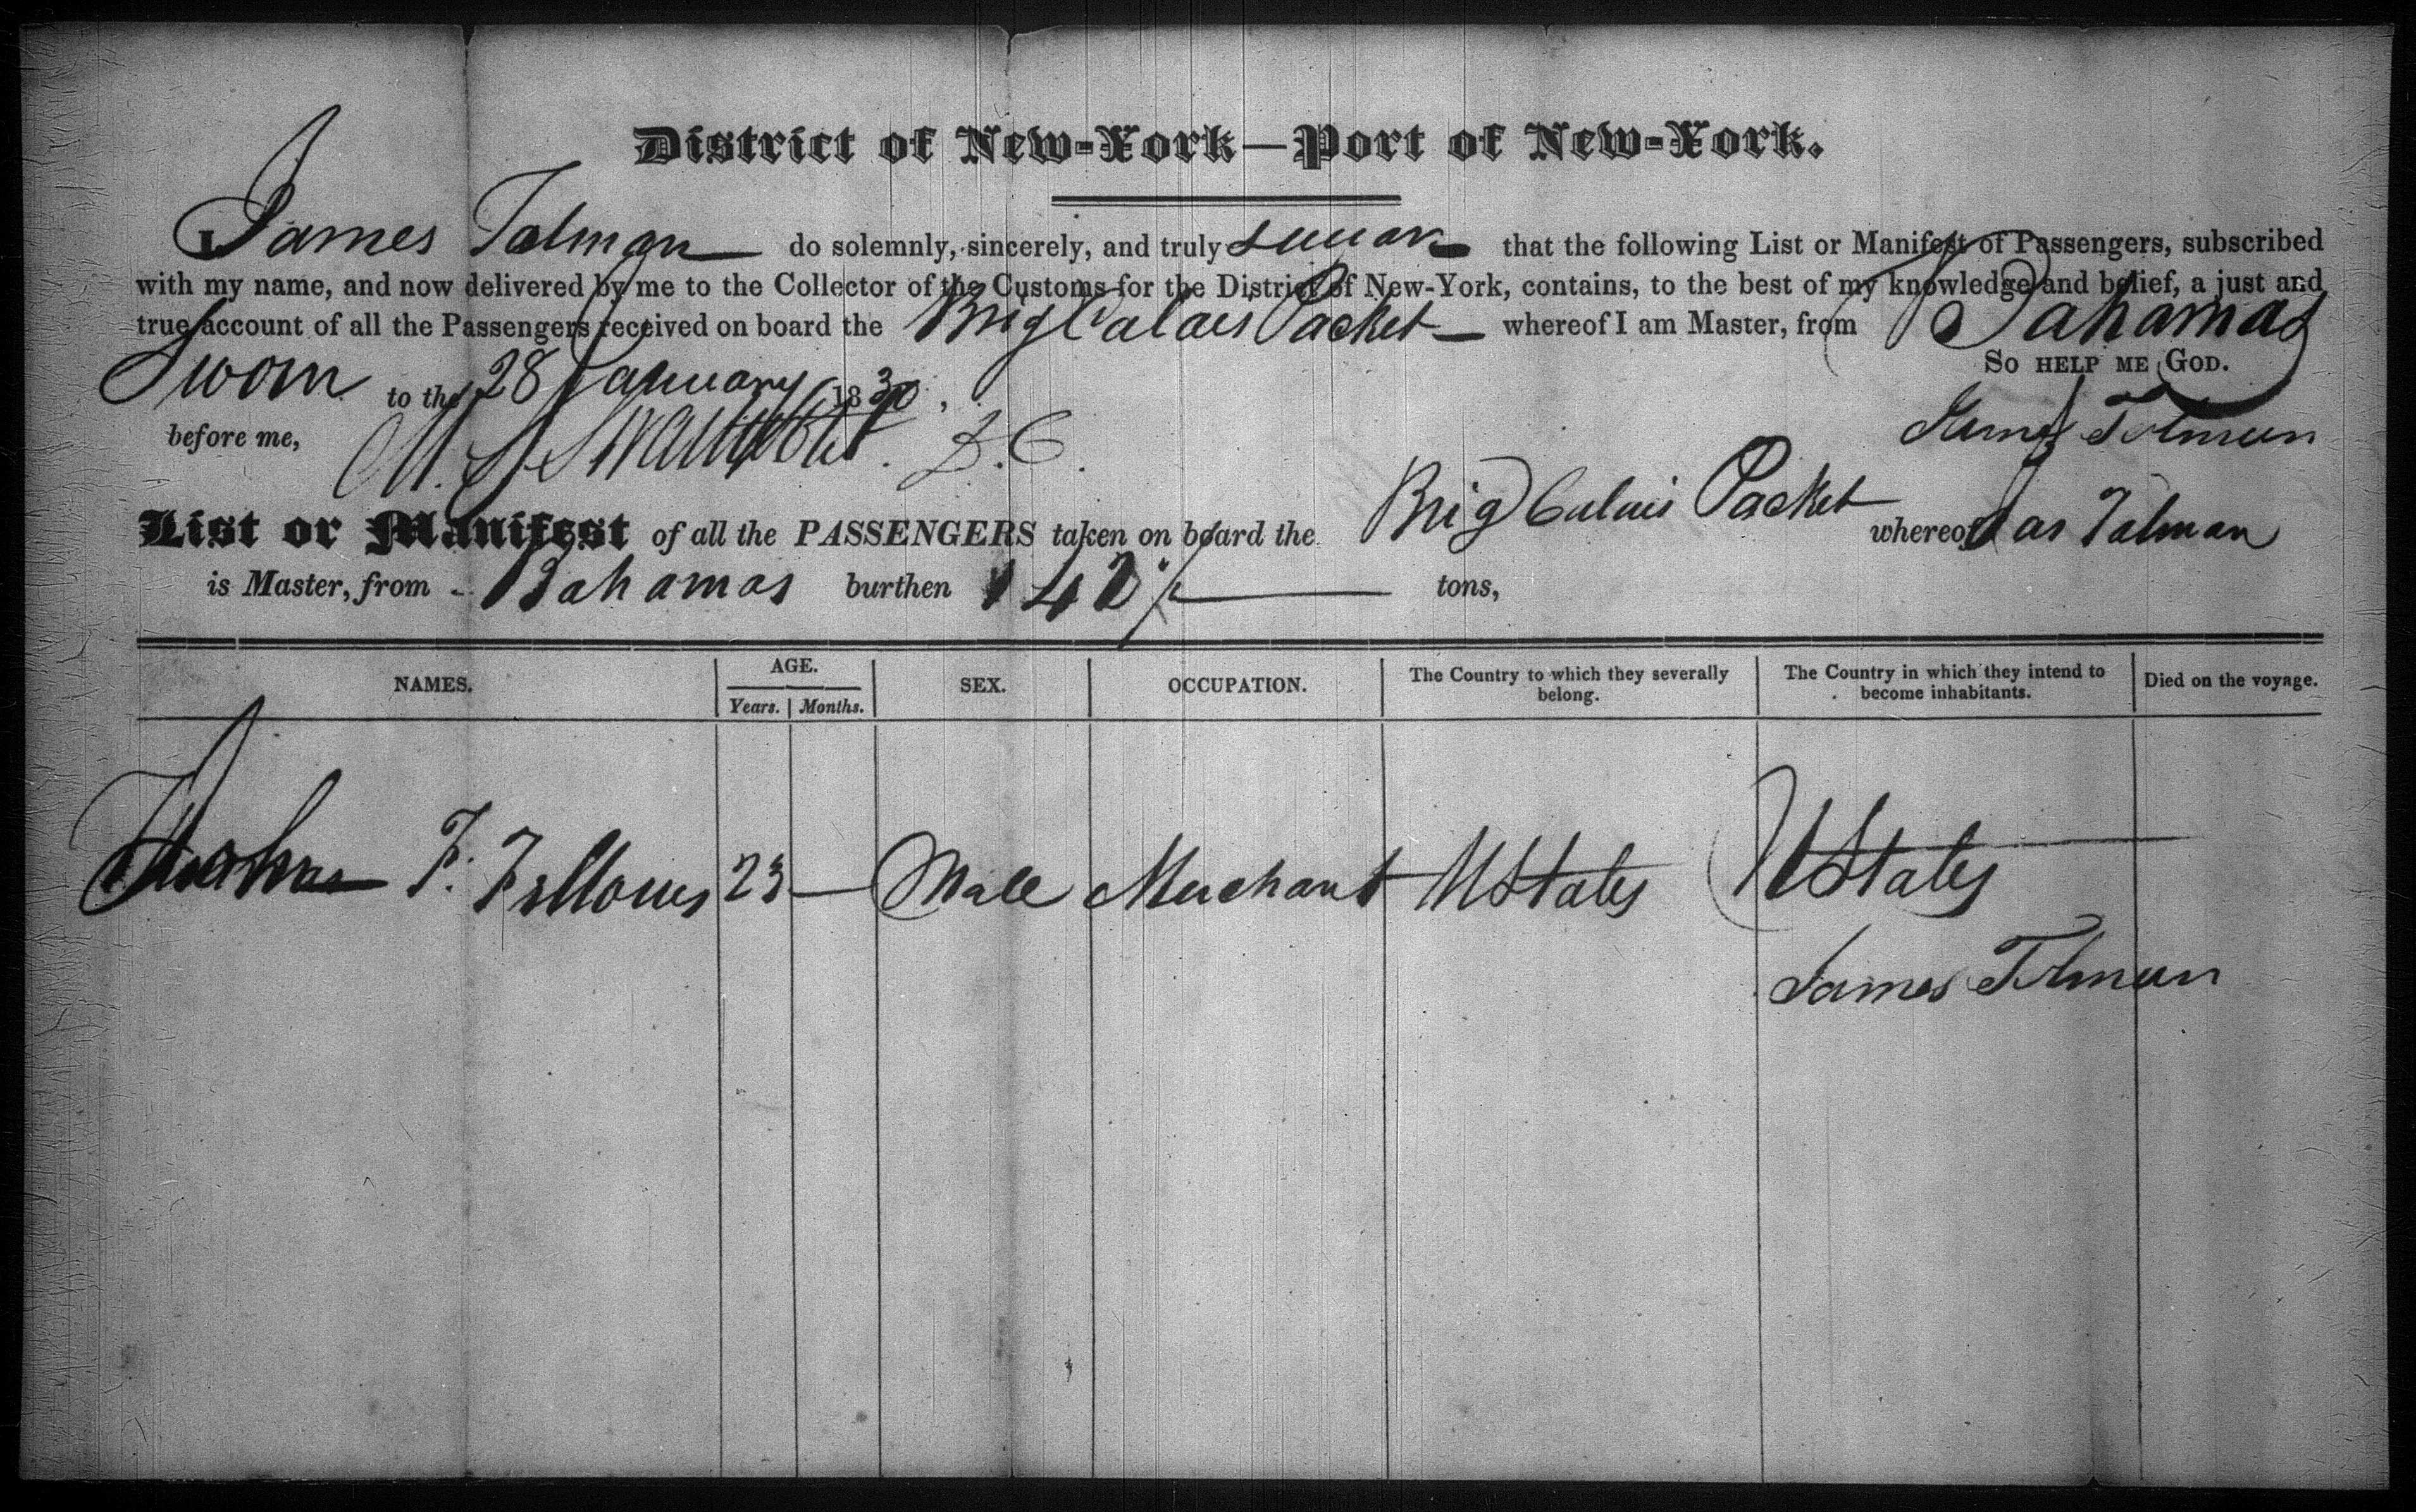 District of New-York—Port of New-York.
I, James Tolman do solemnly, sincerely, and truly swear that the following List or Manifest of Passengers, subscribed
with my name, and now delivered by me to the Collector of the Customs for the District of New-York, contains, to the best of my knowledge and belief, a just and
true account of all the Passengers received on board the Brig Calais Packet whereof I am Master, from Bahamas
So HELP ME GOD.
Sworn to the 28 January 1830,
before me, D.C. James Tolman
List or Manifest of all the PASSENGERS taken on board the Brig Calais Packet whereof Jas Tolman
is Master, from Bahamas burthen tons,
NAMES. AGE. Years. Months. SEX. OCCUPATION. The Country to which they severally belong. The Country in which they intend to become inhabitants. Died on the voyage.
F. Fellows 23 — Male Merchant UStates UStates
James Tolman